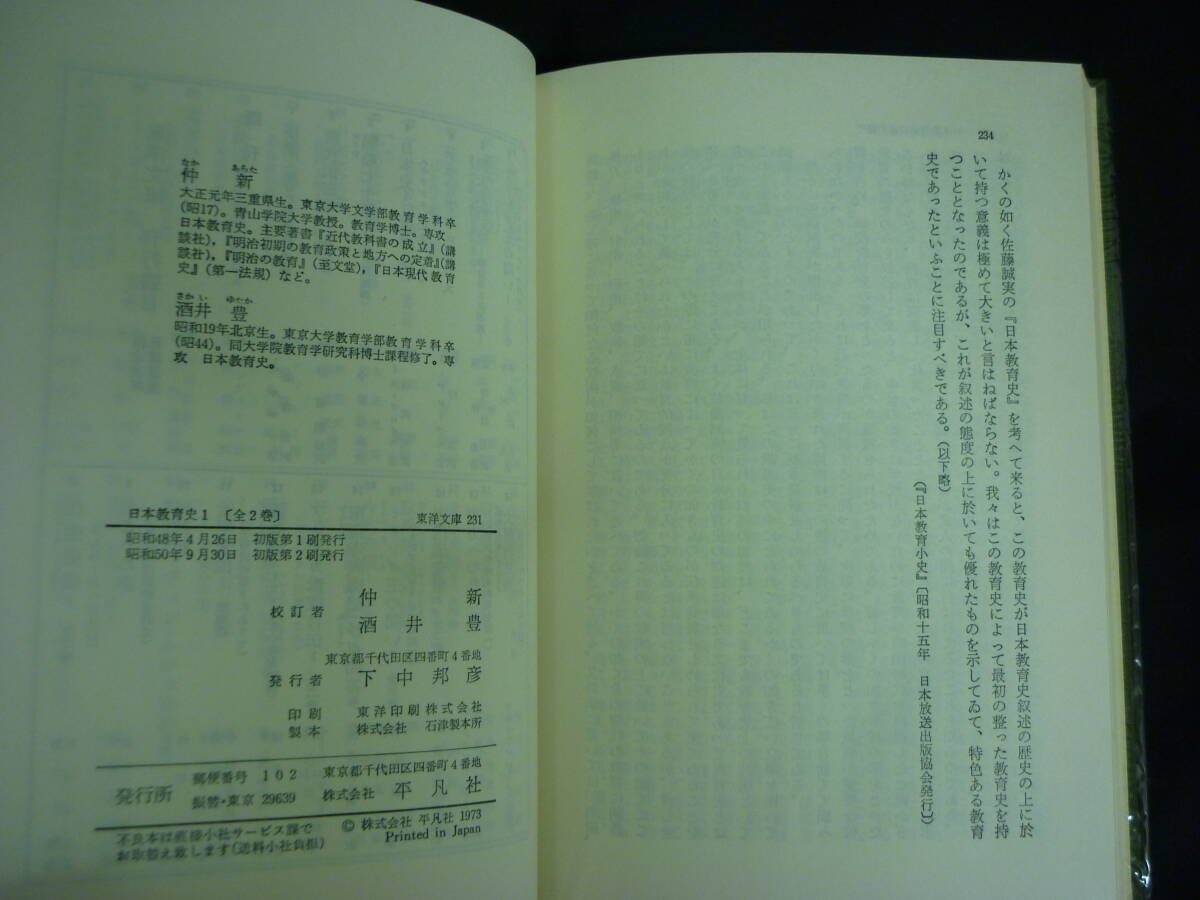 234
かくの如く佐藤誠実の『日本教育史』を考へて来ると、この教育史が日本教育史叙述の歴史の上に於
いて持つ意義は極めて大きいと言はねばならない。我々はこの教育史によって最初の整った教育史を持
つこととなったのであるが、これが叙述の態度の上に於いても優れたものを示してゐて、特色ある教育
史であったといふことに注目すべきである。(以下略)
(『日本教育小史』〔昭和十五年 日本放送出版協会発行〕)
なか あらた
仲 新
大正元年三重県生。東京大学文学部教育学科卒
(昭17)。青山学院大学教授。教育学博士。専攻
日本教育史。主要著書『近代教科書の成立』(講
談社),『明治初期の教育政策と地方への定着』(講
談社),『明治の教育』(至文堂),『日本現代教育
史』(第一法規)など。
さかい ゆたか
酒井 豊
昭和19年北京生。東京大学教育学部教育学科卒
(昭44)。同大学院教育学研究科博士課程修了。専
攻 日本教育史。
日本教育史1 〔全2巻〕 東洋文庫 231
昭和48年4月26日 初版第1刷発行
昭和50年9月30日 初版第2刷発行
校訂者 仲 新
酒井 豊
東京都千代田区四番町4番地
発行者 下中邦彦
印刷 東洋印刷株式会社
製本 株式会社 石津製本所
発行所 郵便番号 102 東京都千代田区四番町4番地
振替・東京 29639 株式会社 平凡社
不良本は直接小社サービス課で
お取替え致します(送料小社負担)
© 株式会社 平凡社 1973
Printed in Japan